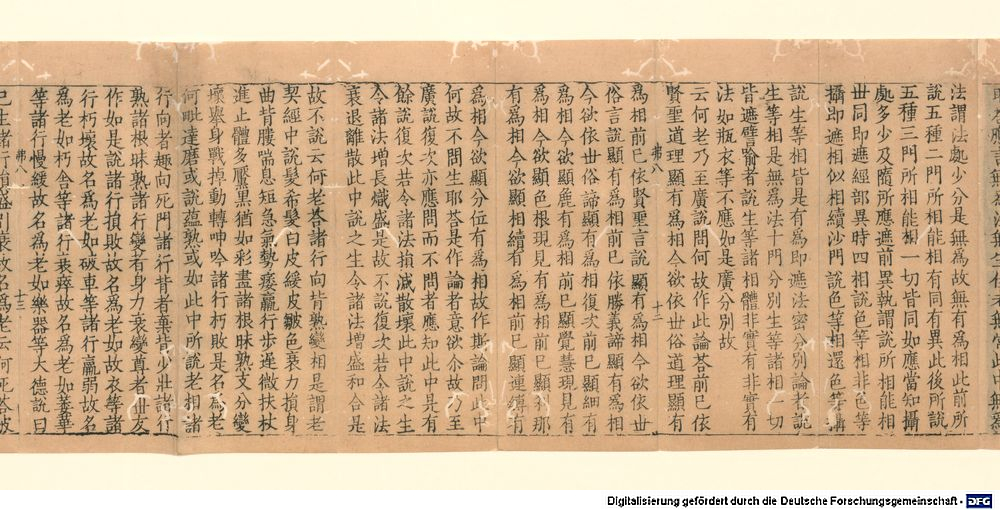 法謂法處少分是無爲故無有爲相此前所
說五種二門所相能相有同有異此後所說
五種三門所相能相一切皆同如應當知攝
處多少及隨所應遮前異執謂說所相能相
世同即遮經部異時四相說色等相非色等
攝即遮相似相續沙門說色等相還色等攝
說生等相皆是有爲即遮法密分別論者說
生等相是無爲法十門分別生等諸相一切
皆遮譬喻者說生等諸相體非實有非實有
法如瓶衣等不應如是廣分別故
云何老乃至廣說問何故作此論荅前已依
賢聖道理顯有爲相今欲依世俗道理顯有
弗八 十二
爲相前已依賢聖言說顯有爲相今欲依世
俗言說顯有爲相前已依勝義諦顯有爲相
今欲依世俗諦顯有爲相復次前已顯細有
爲相今欲顯麁有爲相前已顯覺慧現見有
爲相今欲顯色根現見有爲相前已顯剎那
有爲相今欲顯相續有爲相前已顯連縛有
爲相今欲顯分位有爲相故作斯論問此中
何故不問生耶荅是作論者意欲尒故乃至
廣說復次亦應問而不問者應知此中是有
餘說復次若令諸法損減散壞此中說之生
令諸法增長熾盛是故不說復次若令諸法
衰退離散此中說之生令諸法增盛和合是
故不說云何老荅諸行向背熟變相是謂老
契經中說髮希髮白皮緩皮皺色衰力損身
曲背僂喘息短急氣勢痿羸行步遲微扶杖
進止體多黶黑猶如彩畫諸根昧熟支分變
壞舉身戰掉動轉呻吟諸行朽敗是名爲老
何毗達磨或說蘊熟或如此中所說老相諸
行向者趣向死門諸行背者棄背少壯諸行
熟諸根昧熟諸行變者身力衰變尊者世友
作如是說諸行損敗故名爲老如故衣等諸
行朽壞故名爲老如破車等諸行羸弱故名
爲老如朽舍等諸行衰瘁故名爲老如萎華
等諸行慢緩故名爲老如樂器等大德說曰
弗八 十三
已生諸行損盛引衰故名爲老云何死荅彼
Digitalisierung gefördert durch die Deutsche Forschungsgemeinschaft - DFG